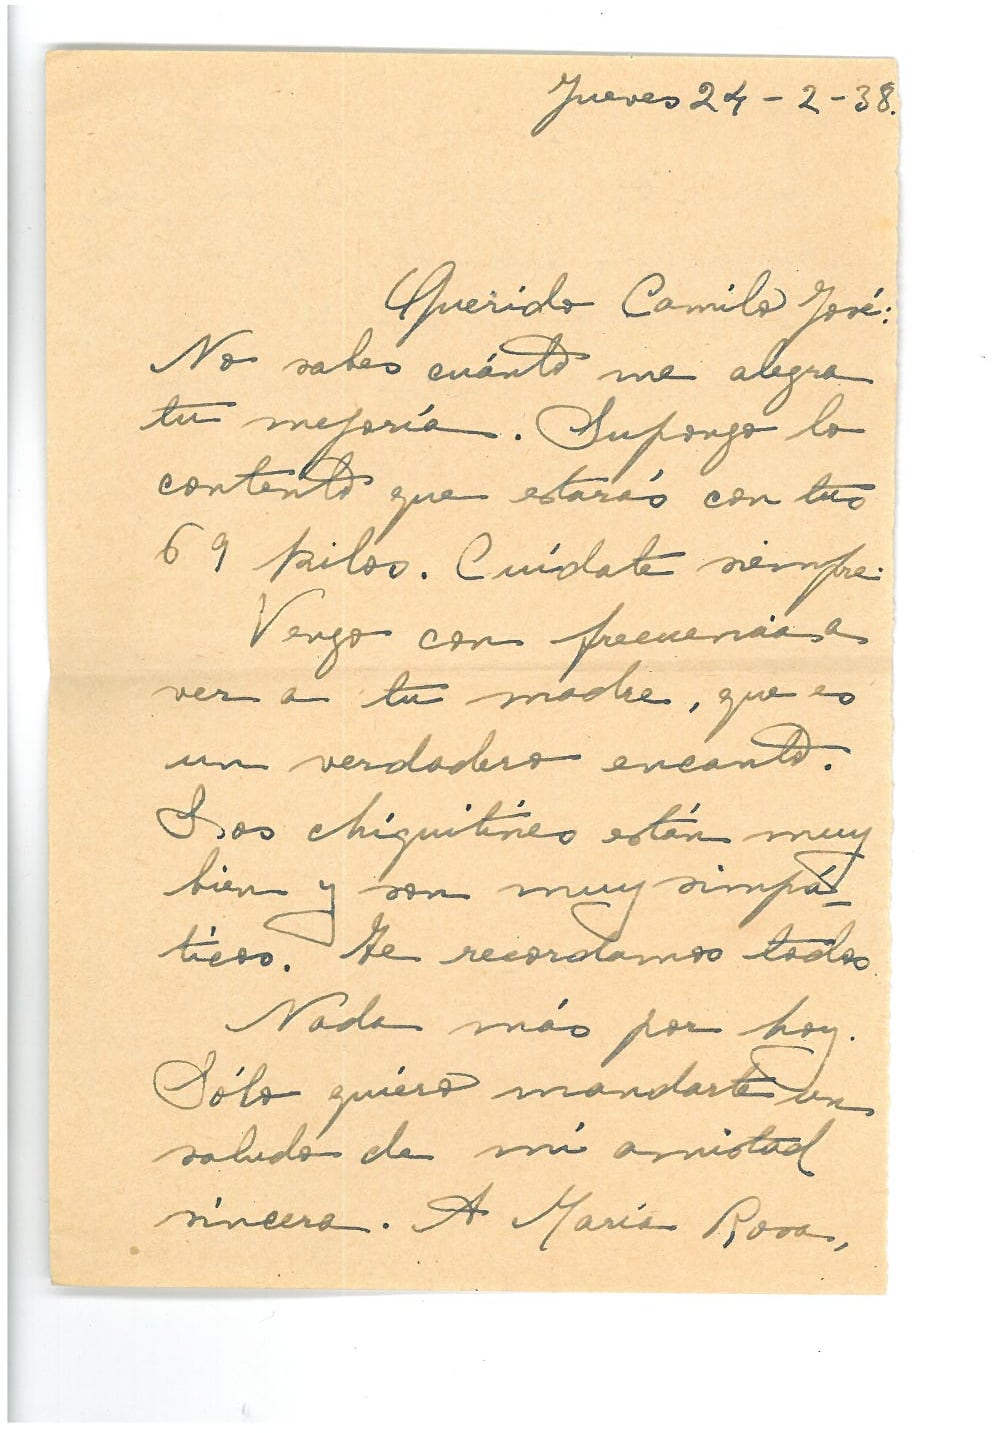 Jueves 24-2-38.
Querido Camilo José:
No sabes cuánto me alegra
tu mejoría. Supongo lo
contento que estarás con tus
69 kilos. Cuídate siempre.
Vengo con frecuencia a
ver a tu madre, que es
un verdadero encanto.
Los chiquitines están muy
bien y son muy simpá-
ticos. Te recordamos todos
Nada más por hoy.
Sólo quiero mandarte un
saludo de mi amistad
sincera. A María Rosa,